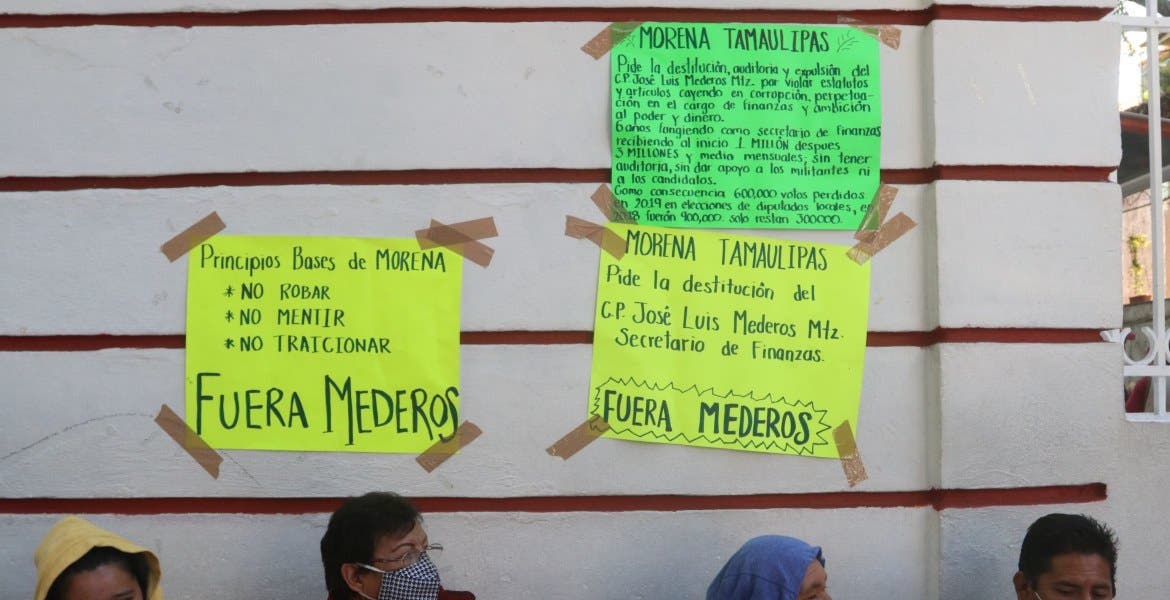 MORENA TAMAULIPAS
Pide la destitución, auditoria y expulsión del
C.P. José Luis Mederos Mtz. por violar estatutos
y artículos cayendo en corrupción, perpetua-
ción en el cargo de finanzas y ambición
al poder y dinero.
6 años fungiendo como secretario de finanzas
recibiendo al inicio 1 MILLÓN despues
3 MILLONES y medio mensuales, sin tener
auditoria, sin dar apoyo a los militantes ni
a los candidatos.
Como consecuencia 600,000 votos perdidos
en 2019 en elecciones de diputados locales, en
2018 fuerón 900,000. solo restan 300000.
Principios Bases de MORENA
* NO ROBAR
* NO MENTIR
* NO TRAICIONAR
FUERA MEDEROS
MORENA TAMAULIPAS
Pide la destitución del
C.P. José Luis Mederos Mtz.
Secretario de Finanzas.
FUERA MEDEROS